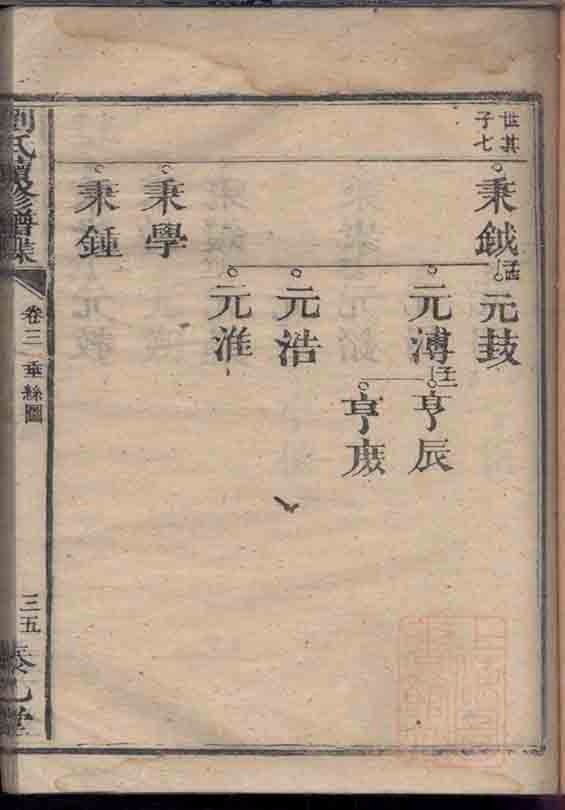 世其
子七
秉鉞
元鼓
元溥
亨辰
亨慶
元浩
元淮
秉學
秉鍾
劉氏續修譜
卷三 垂絲圖
三五
堂